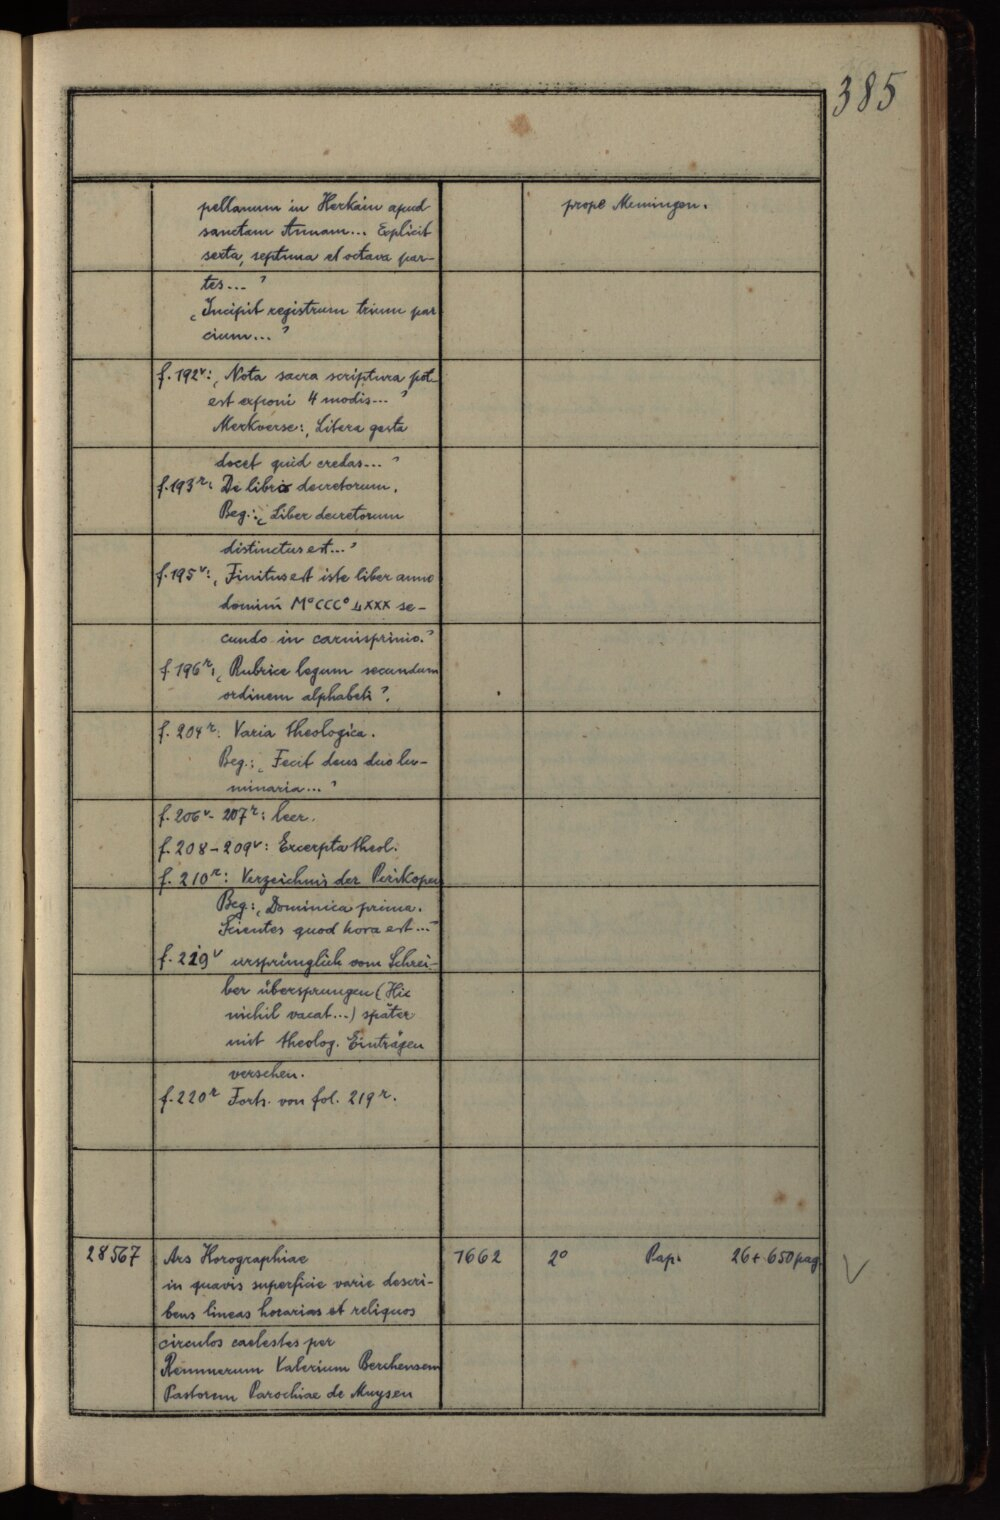 385
pellanum in Herkain apud
sanctam Annam... Explicit
sexta, septima et octava par-
tes... ʼ
prope Memingen.
‚Incipit registrum trium par
cium... ʼ
f. 192ᵛ: ‚Nota sacra scriptura pot-
est exponi 4 modis... ʼ
Merkverse: ‚Litera gesta
docet quid credas... ʼ
f. 193ʳ: De libris decretorum.
Beg.: ‚Liber decretorum
distinctus est... ʼ
f. 195ᵛ: ‚Finitus est iste liber anno
domini M°CCC° LXXX se-
cundo in carnisprinio.ʼ
f 196ʳ: ‚Rubrice legum secundum
ordinem alphabetiʼ.
f. 204ʳ: Varia theologica.
Beg.: ‚Fecit deus duo lu-
minaria... ʼ
f. 206ᵛ- 207ʳ: leer.
f. 208 - 209ᵛ: Excerpta theol.
f. 210ʳ: Verzeichnis der Perikopen
Beg.: ‚Dominica prima.
Scientes quod hora est...ʼ
f. 219ᵛ ursprünglich vom Schrei-
ber übersprungen (Hic
nichil vacat...) später
mit theolog. Einträgen
versehen.
f. 220ʳ Forts. von fol. 219ʳ.
28567 Ars Horographiae 1662 2° Pap. 26 + 650 pag.
in quavis superficie varie descri-
bens lineas horarias et reliquos
circulos caelestes per
Remmerum Valerium Berchensem
Pastorem Parochiae de Muysen